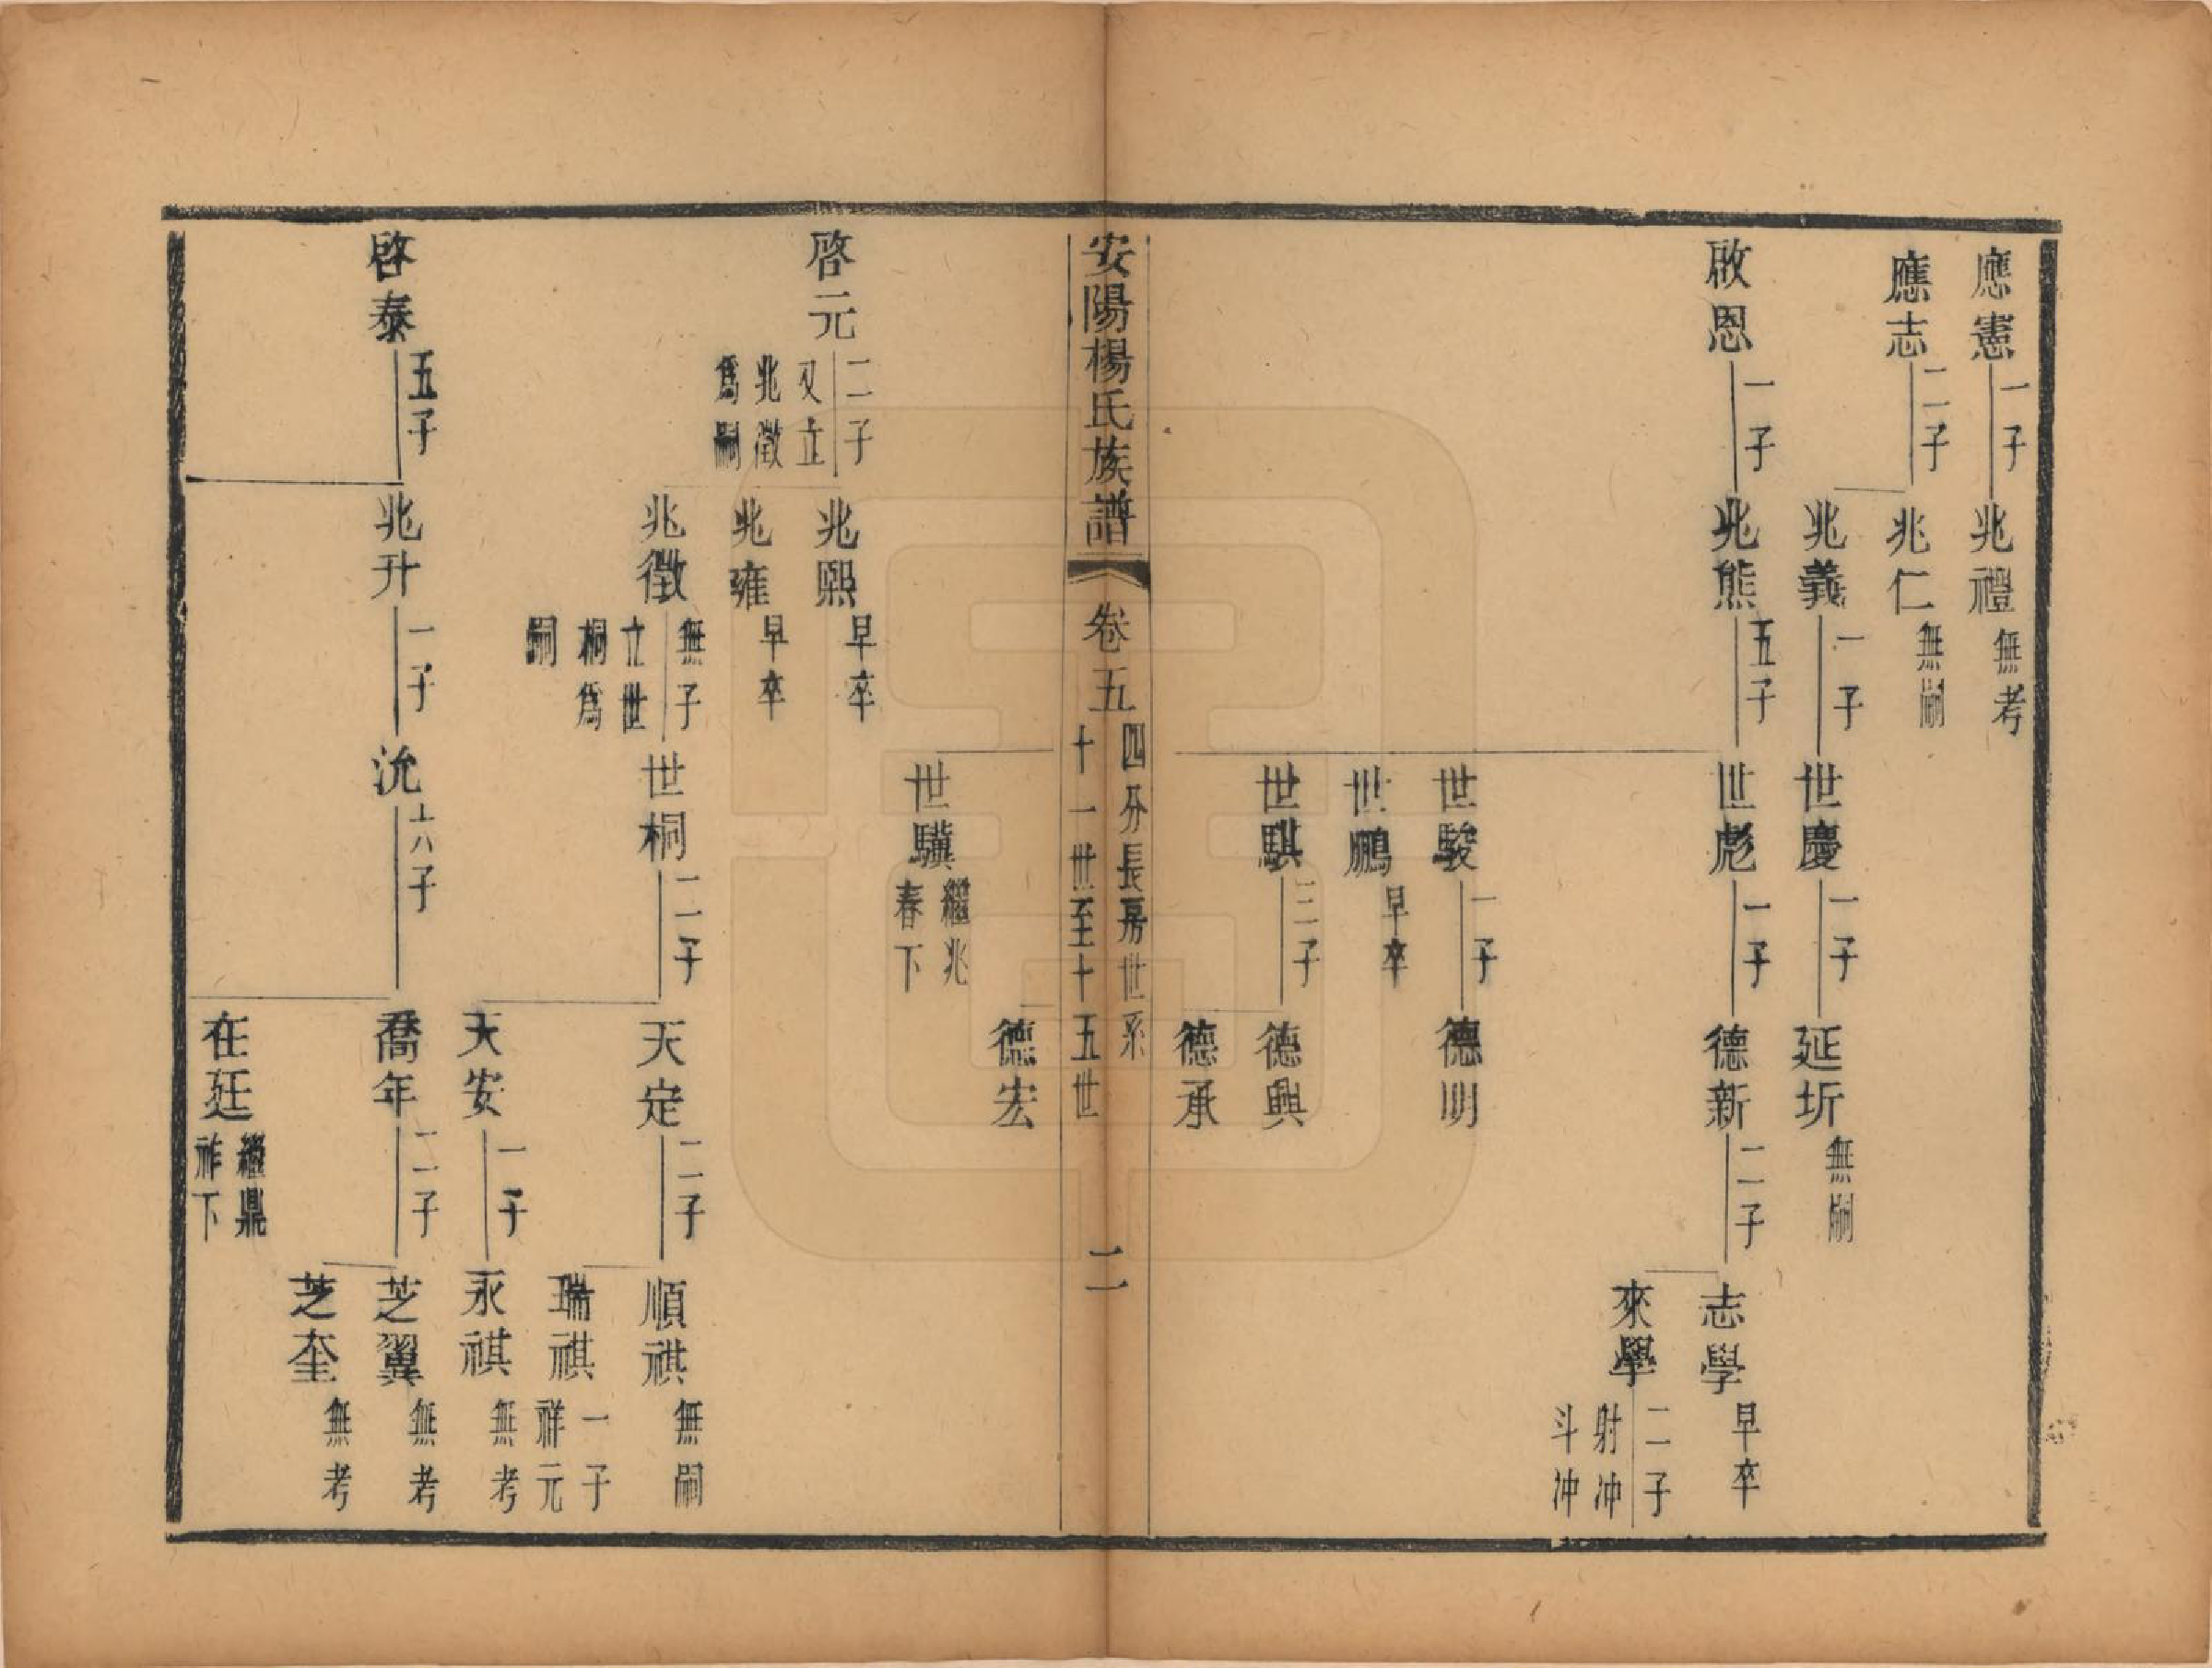 應憲 一子
兆禮 無考
應志 二子
兆仁 無嗣
兆義 一子
世慶 一子
延圻 無嗣
啟恩 一子
兆熊 五子
世彪 一子
德新 二子
志學 早卒
來學 二子
射冲
斗冲
世駿 一子
德明
世鵬 早卒
世騏 三子
德興
德承
安陽楊氏族譜 卷五 四分長房世系
十一世至十五世
二
德宏
世驥 繼兆
春下
啓元 二子
又立
兆徵
爲嗣
兆熙 早卒
兆雍 早卒
兆徵 無子
立世
桐爲
嗣
世桐 二子
天定 二子
順祺 無嗣
瑞祺 一子
祥元
天安 一子
永祺 無考
啓泰 五子
兆升 一子
沇 六子
喬年 二子
芝翼 無考
芝奎 無考
在廷 繼鼎
祚下